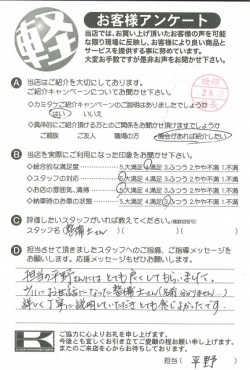 軽
お客様アンケート
当店では、お買い上げ頂いたお客様の声を可能
な限り現場に反映し、お客様により良い商品と
サービスを提供する事に努めています。
大変お手数ですが是非お声をお聞かせ下さい。
A 当店はご紹介を大切にしております。
ご紹介キャンペーンについてお聞かせ下さい。
◇カミタケご紹介キャンペーンのご説明はありましたでしょうか
はい いいえ
◇具体的にご紹介頂ける方とのご関係をお聞かせ頂けますでしょうか
ご親族 ご友人 職場の方 機会があれば紹介したい
B 当店を実際にご利用になった印象をお聞かせ下さい。
◇総合的な満足度 5.大満足 4.満足 3.ふつう 2.やや不満 1.不満
◇スタッフの対応 5.大満足 4.満足 3.ふつう 2.やや不満 1.不満
◇お店の雰囲気、清掃 5.大満足 4.満足 3.ふつう 2.やや不満 1.不満
◇納車時のお車の状態 5.大満足 4.満足 3.ふつう 2.やや不満 1.不満
C 評価したいスタッフがいれば教えてください。(複数回答可)
スタッフ名( 整備士さん )
D 担当させて頂きましたスタッフへのご指摘、ご指導メッセージを
お願いします。応援メッセージもぜひお願いします。
担当の平野さんにはとても良くしてもらいまして。
お世話になった整備士さん(名前分かりません…)
詳しく丁寧に説明していただきとても良かったです。
K
ご協力に心よりお礼を申し上げます。
今後とも宜しくお引き立てご愛顧の程お願い申し上げます。
またのご来店を心からお待ちしております。
担当( 平野 )